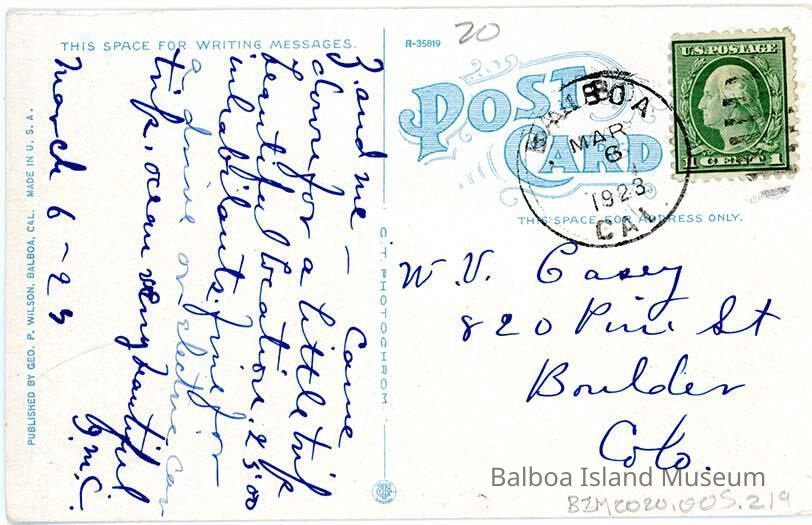 THIS SPACE FOR WRITING MESSAGES.
R-35819
20
POST CARD
BALBOA
MAR
6
1923
CAL.
U.S. POSTAGE
1 CENT 1
THIS SPACE FOR ADDRESS ONLY.
and me — Came
down for a little trip
beautiful location. 2500
inhabitants. fine for
a drive or electric car
trip. ocean very beautiful
March 6-23 G.M.C.
W. V. Casey
820 Pine St
Boulder
Colo.
PUBLISHED BY GEO. P. WILSON, BALBOA, CAL. MADE IN U.S.A.
C.T. PHOTOCHROM
Balboa Island Museum
BIM2020.005.219